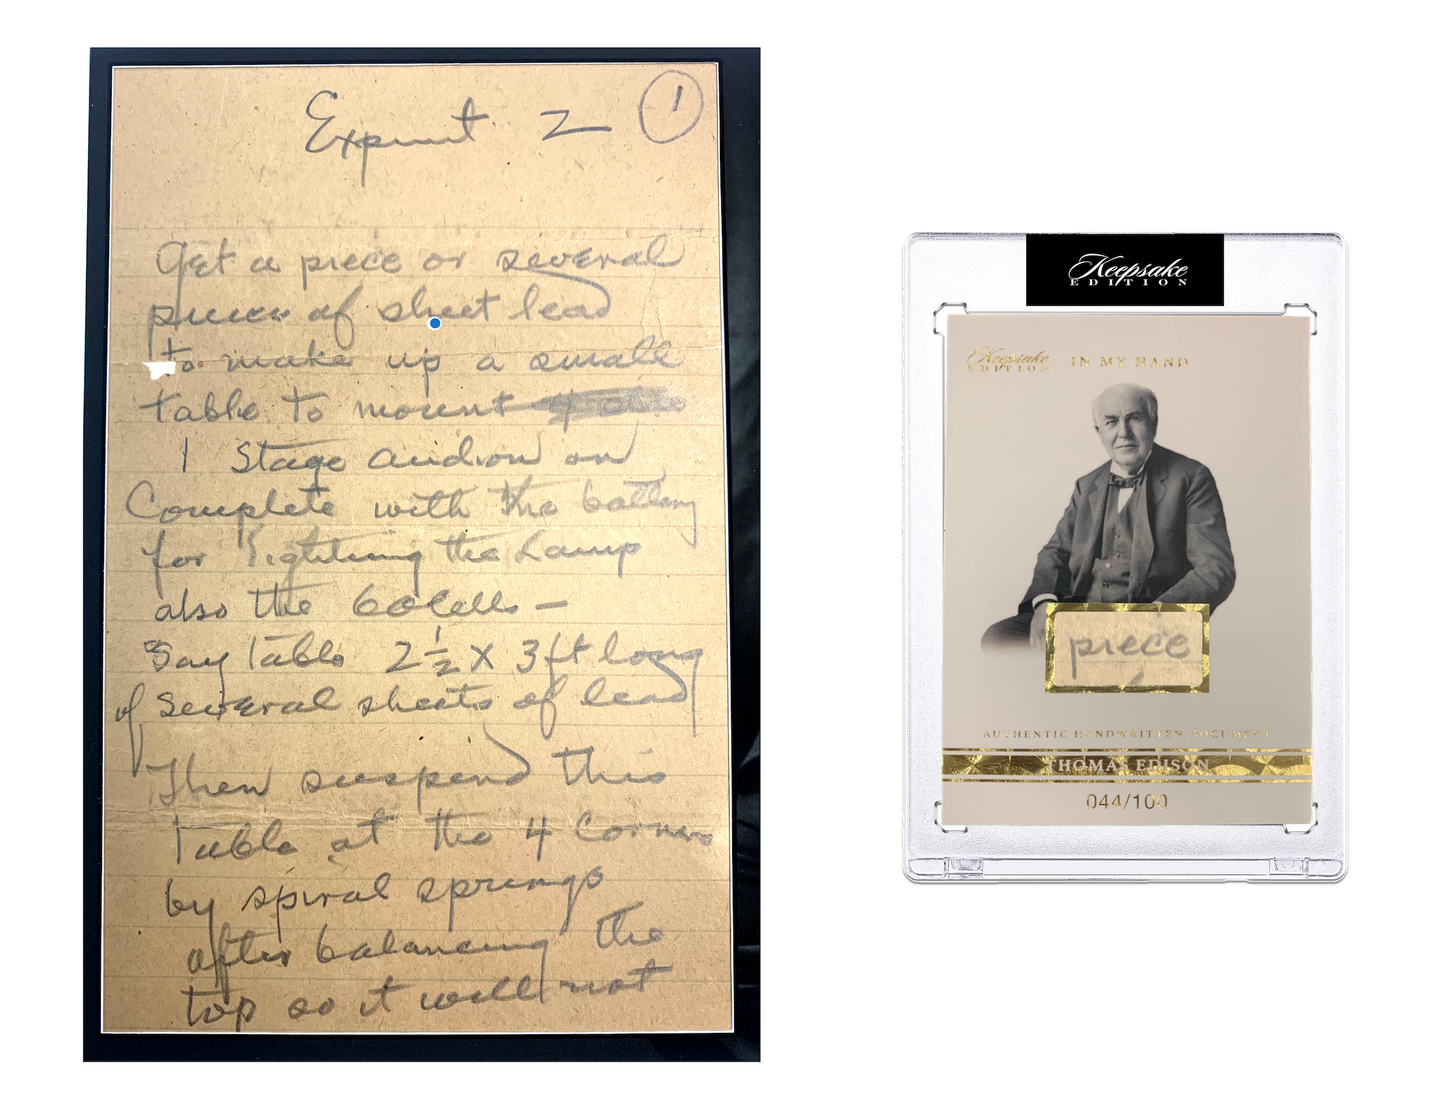 Expmt 2
1
Get a piece or several
pieces of sheet lead
to make up a small
table to mount
1 Stage audion on
Complete with the battery
for lighting the Lamp
also the 60 cells —
Say table 2½ x 3 ft long
of several sheets of lead
Then suspend this
table at the 4 Corners
by spiral springs
after balancing the
top so it will not
Keepsake
EDITION
Keepsake
EDITION
IN MY HAND
piece
AUTHENTIC HANDWRITTEN DOCUMENT
THOMAS EDISON
044/100